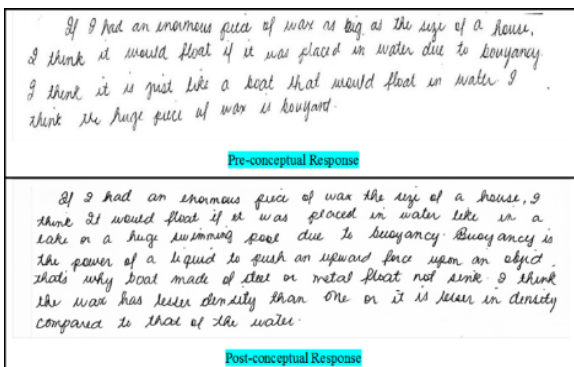 If I had an enormous piece of wax as big as the size of a house,
I think it would float if it was placed in water due to bouyancy.
I think it is just like a boat that would float in water. I
think the huge piece of wax is bouyant.
Pre-conceptual Response
If I had an enormous piece of wax the size of a house, I
think It would float if it was placed in water like in a
lake or a huge swimming pool due to buoyancy. Buoyancy is
the power of a liquid to push an upward force upon an object
that's why boat made of steel or metal float not sink. I think
the wax has lesser density than one or it is lesser in density
compared to that of the water.
Post-conceptual Response